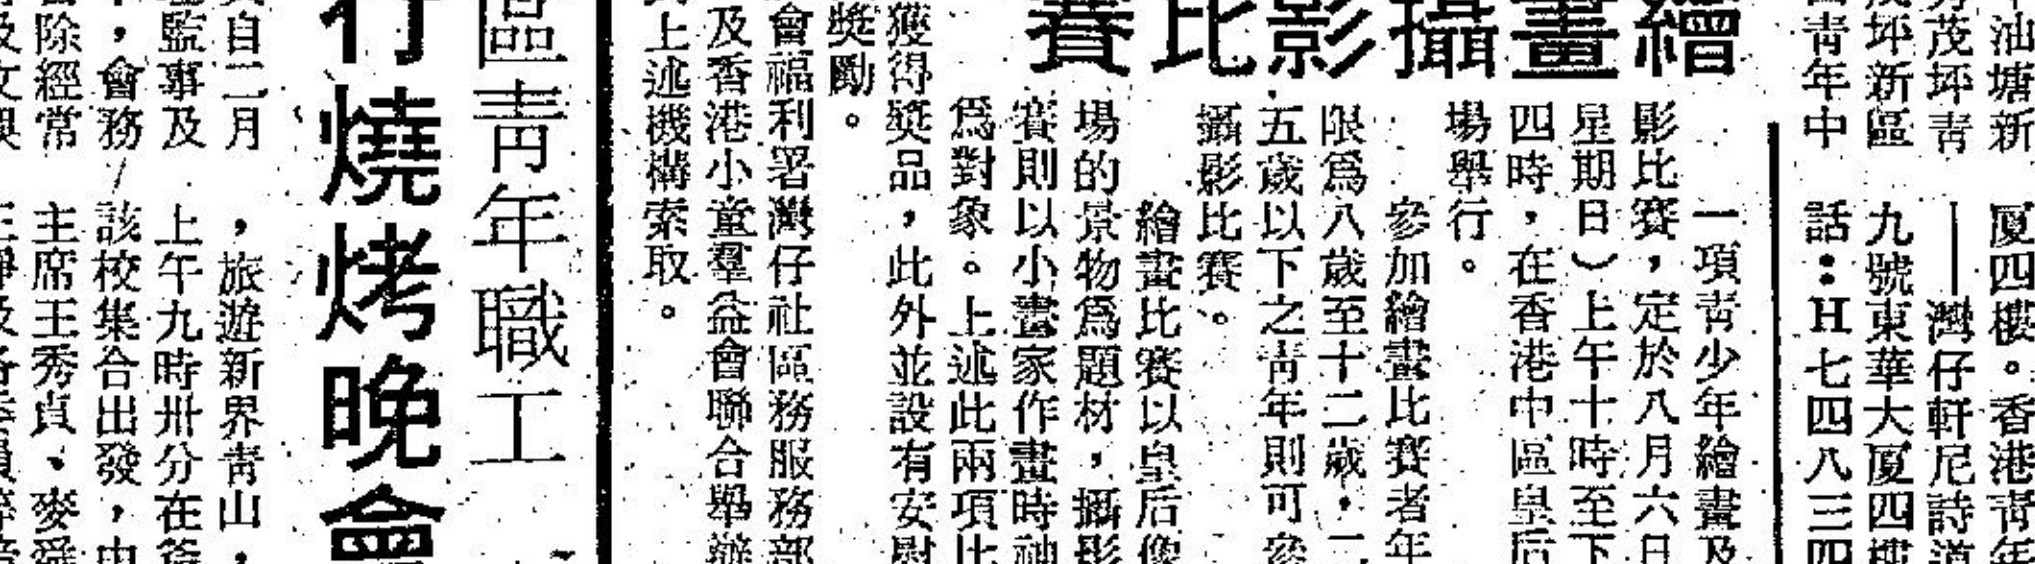 油塘新
茂坪青
坪新區
青年中
厦四樓。香港青年
——灣仔軒尼詩道
九號東華大厦四樓
話：H七四八三四
繪畫攝影比賽
一項青少年繪畫及
影比賽，定於八月六日
星期日）上午十時至下
四時，在香港中區皇后
場舉行。
參加繪畫比賽者年
限爲八歲至十二歲，二
五歲以下之青年則可參
攝影比賽。
繪畫比賽以皇后像
場的景物爲題材，攝影
賽則以小畫家作畫時神
爲對象。上述此兩項比
獲得獎品，此外並設有安慰
獎勵。
會福利署灣仔社區務服務部
及香港小童羣益會聯合舉辦
上述機構索取。
區青年職工
行燒烤晚會
自二月
監事及
，會務
除經常
，旅遊新界青山，
上午九時卅分在
該校集合出發，由
主席王秀貞、麥